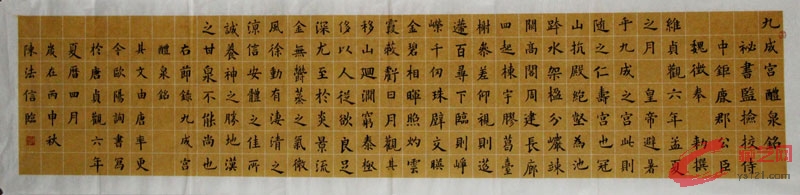 九成宮醴泉銘
祕書監撿挍侍
中鉅鹿郡公臣
魏徵奉 勅撰
維貞觀六年孟夏
之月 皇帝避暑
乎九成之宮此則
隨之仁壽宮也冠
山抗殿絕壑為池
跨水架楹分巖竦
闕高閣周建長廊
四起棟宇膠葛臺
榭參差仰視則迢
遰百尋下臨則崢
嶸千仞珠璧交暎
金碧相暉照灼雲
霞蔽虧日月觀其
移山迴澗窮泰極
侈以人從欲良足
深尤至於炎景流
金無鬱蒸之氣微
風徐動有淒清之
涼信安體之佳所
誠養神之勝地漢
之甘泉不能尚也
右節錄九成宮
醴泉銘
其文由唐率更
令歐陽詢書寫
於唐貞觀六年
夏曆四月
歲在丙申秋
陳法信臨